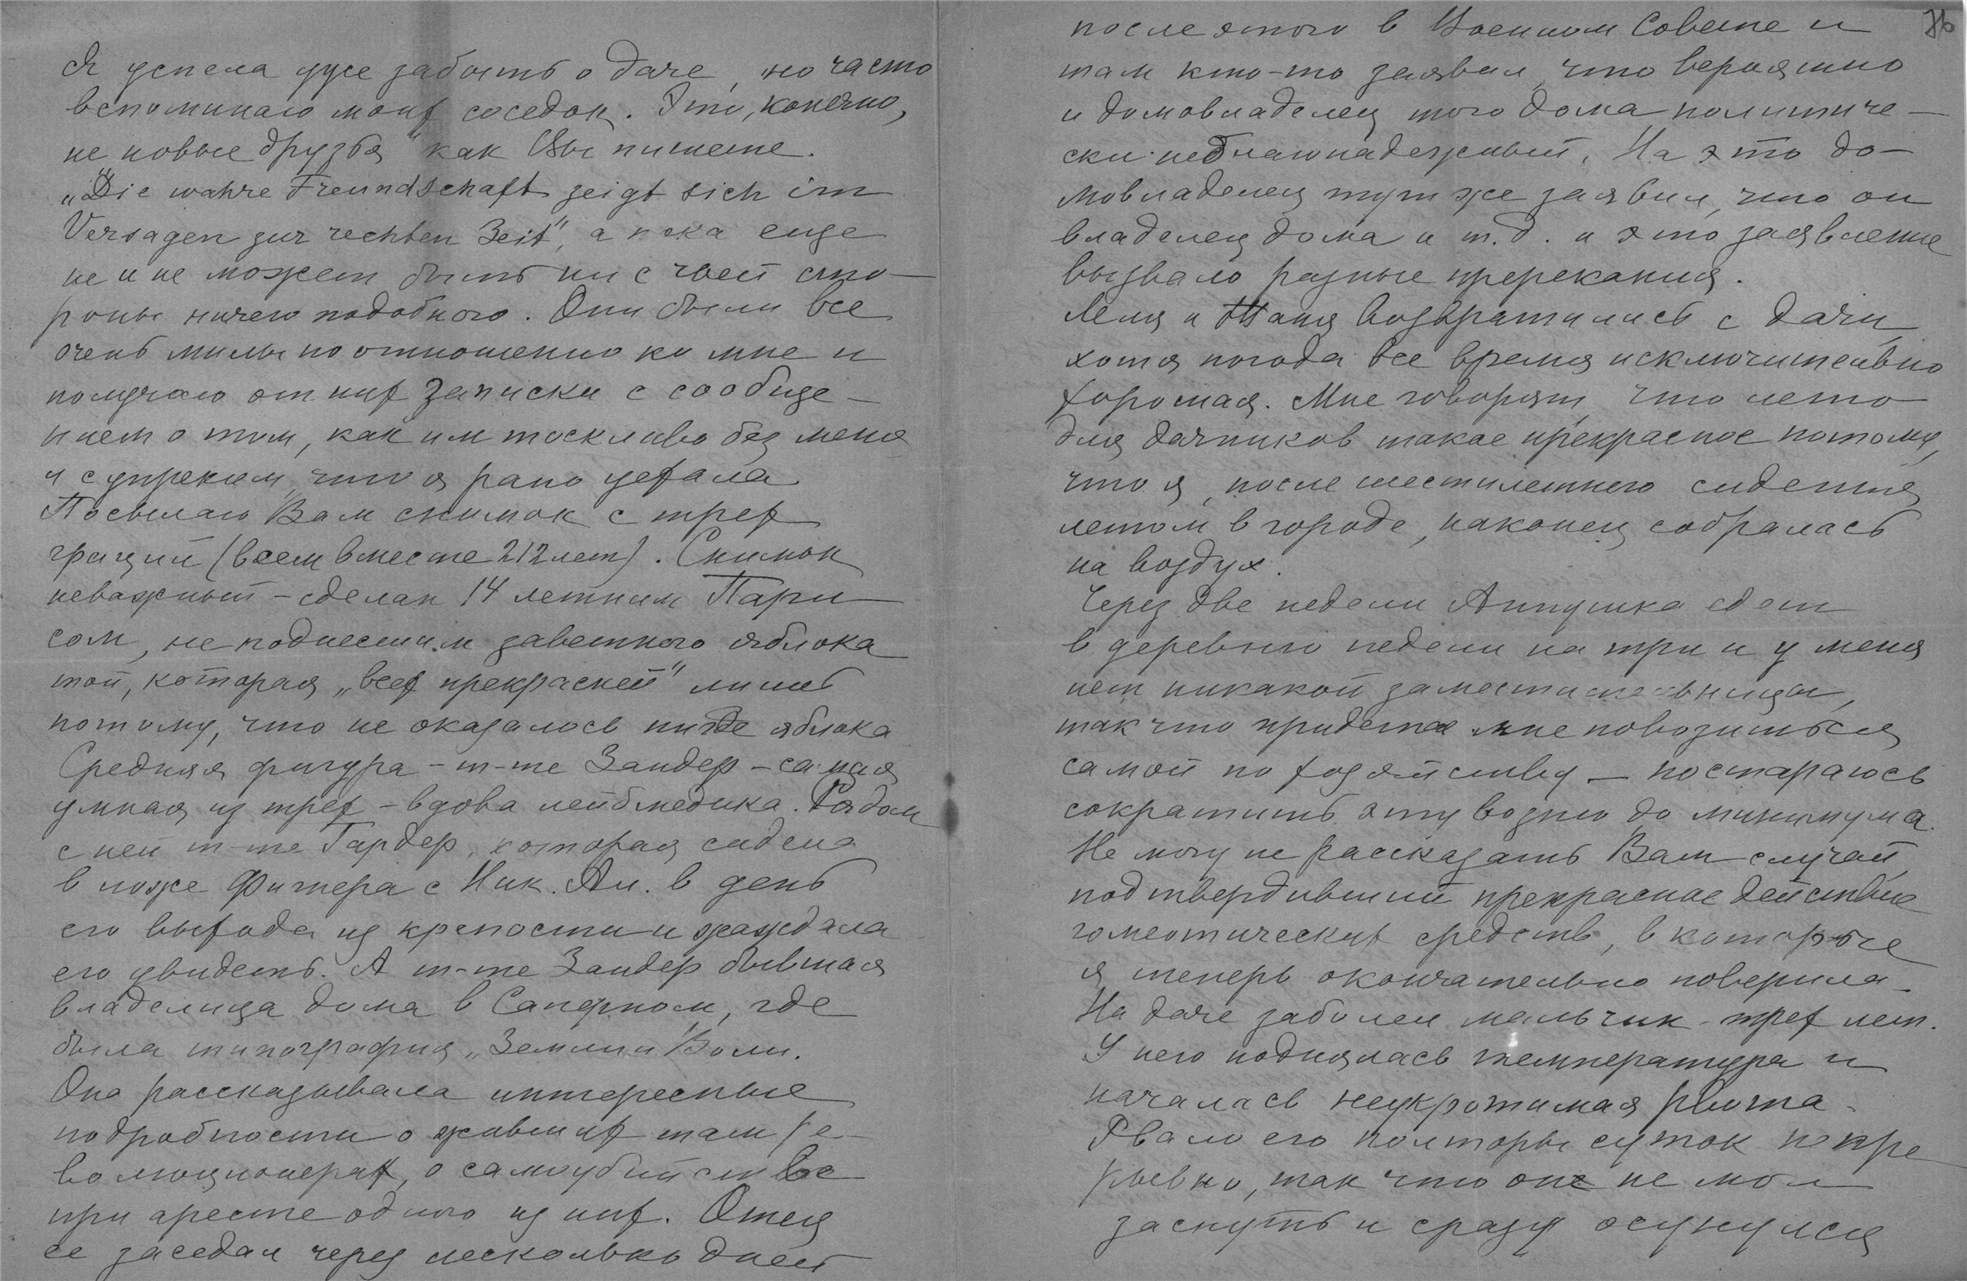 Я успела уже забыть о даче, но часто
вспоминаю моих соседок. Это, конечно,
не новые друзья" как Вы пишете.
"Die wahre Freundschaft zeigt sich im
Versagen zur rechten Zeit", а пока еще
не и не может быть ни с чьей сто-
роны ничего подобного. Они были все
очень милы по отношению ко мне и
получаю от них записки с сообще-
нием о том, как им тоскливо без меня
и с упреком, что я рано уехала
Посылаю Вам снимок с трех
граций (всем вместе 212 лет). Снимок
неважный – сделан 14 летним Пари
сом, не поднесшим заветного яблока
той, которая "всех прекрасней" лишь
потому, что не оказалось нигде яблока
Средняя фигура – m-me Зандер – самая
умная из трех – вдова лейбмедика. Рядом
с ней m-me Гардер, которая сидела
в ложе Фигнера с Ник. Ал. в день
его выхода из крепости и жаждала
его увидеть. А m-me Зандер бывшая
владелица дома в Саперном, где
была типография "Земли и Воли.
Она рассказывала интересные
подробности о живших там ре-
волюционерах, о самоубийстве
при аресте одного из них. Отец
ее заседал через несколько дней
после этого в Военном Совете и
там кто-то заявил, что вероятно
и домовладелец того дома политиче-
ски неблагонадежный. На это до-
мовладелец тут же заявил, что он
владелец дома и т.д. и это заявление
вызвало разные пререкания.
Леля и Таня возвратились с дачи,
хотя погода все время исключительно
хорошая. Мне говорят, что лето
для дачников такое прекрасное потому,
что я, после шестилетнего сидения
летом в городе, наконец собралась
на воздух.
Через две недели Аннушка едет
в деревню недели на три и у меня
нет никакой заместительницы,
так что придется мне повозиться
самой по хозяйству – постараюсь
сократить эту возню до минимума.
Не могу не рассказать Вам случай,
подтвердивший прекрасное действие
гомеотических средств, в которые
я теперь окончательно поверила.
На даче заболел мальчик трех лет.
У него поднялась температура и
началась неукротимая рвота.
Рвало его полторы суток непре
рывно, так что он не мог
заснуть и сразу осунулся
36